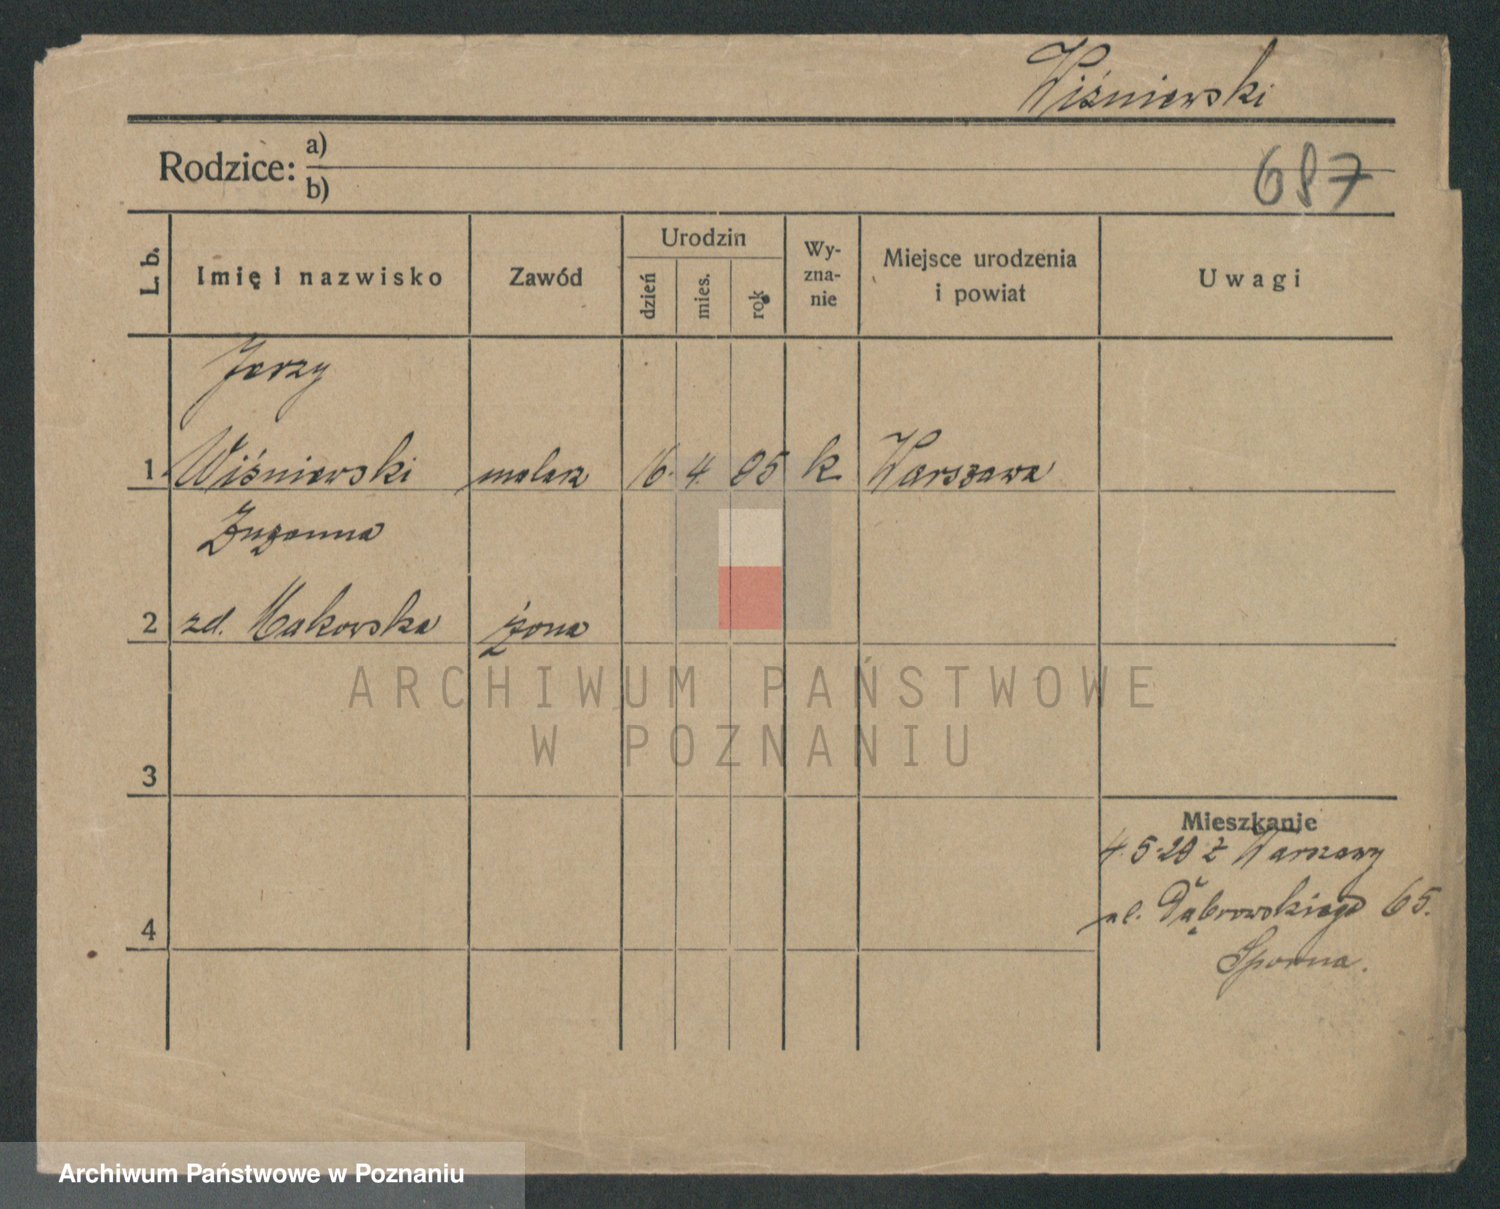 Wiśniewski
Rodzice: a)
b)
687
L. b.
Imię i nazwisko
Zawód
Urodzin
dzień
mies.
rok
Wy-
zna-
nie
Miejsce urodzenia
i powiat
Uwagi
Jerzy
1 Wiśniewski malarz 16. 4. 05 k Warszawa
Zuzanna
2 zd. Makowska żona
ARCHIWUM PAŃSTWOWE
W POZNANIU
3
Mieszkanie
4.5.29 z Warszawy
4
ul. Dąbrowskiego 65.
Sporna.
Archiwum Państwowe w Poznaniu